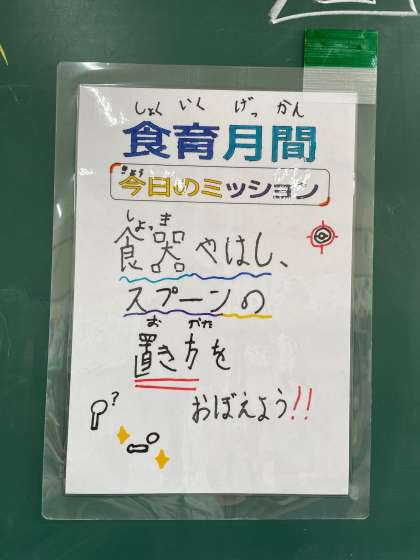 しょく いく げっ かん
食育月間
きょう
今日のミッション
しょっき
食器やはし、
スプーンの
お かた
置き方を
おぼえよう!!
?